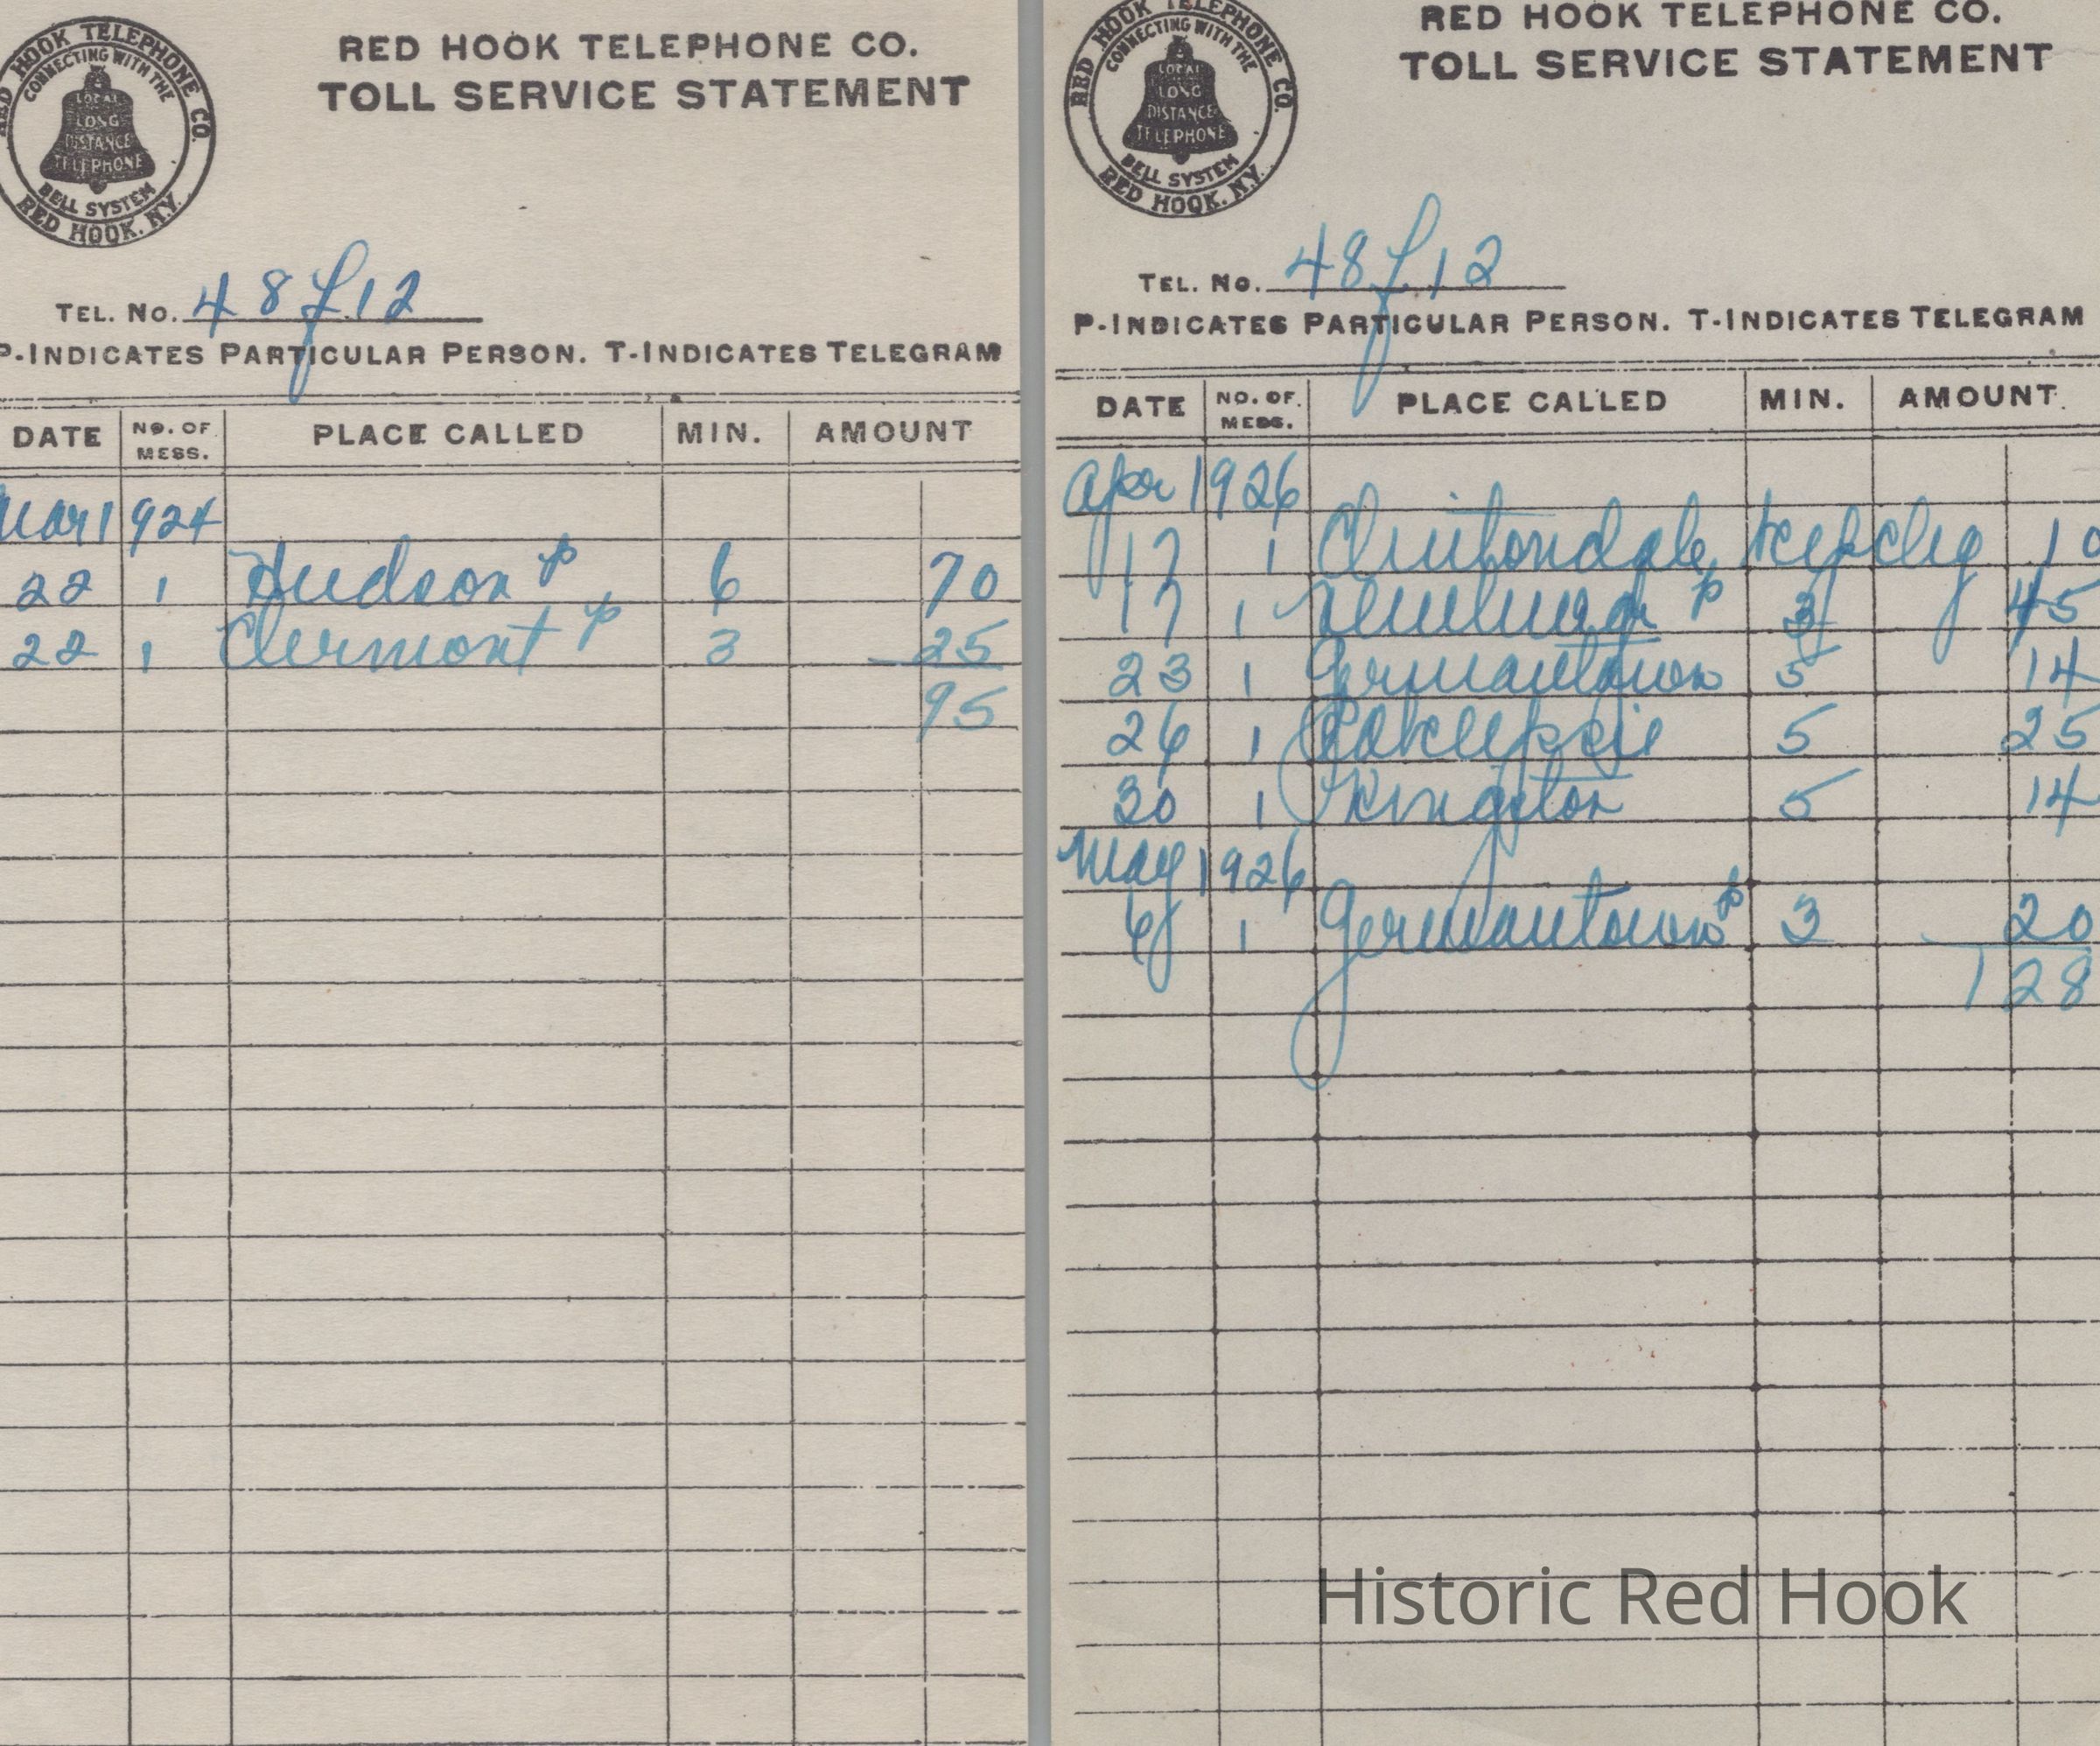 RED HOOK TELEPHONE CO.
TOLL SERVICE STATEMENT
RED HOOK TELEPHONE CO.
CONNECTING WITH THE
LOCAL
LONG
DISTANCE
TELEPHONE
BELL SYSTEM
RED HOOK, N.Y.
TEL. No. 48 f 12
P-INDICATES PARTICULAR PERSON. T-INDICATES TELEGRAM
DATE NO. OF MESS. PLACE CALLED MIN. AMOUNT
Mar 1924
22 1 Hudson p 6 70
22 1 Clermont p 3 25
95
RED HOOK TELEPHONE CO.
TOLL SERVICE STATEMENT
RED HOOK TELEPHONE CO.
CONNECTING WITH THE
LOCAL
LONG
DISTANCE
TELEPHONE
BELL SYSTEM
RED HOOK, N.Y.
TEL. No. 48 f 12
P-INDICATES PARTICULAR PERSON. T-INDICATES TELEGRAM
DATE NO. OF MESS. PLACE CALLED MIN. AMOUNT
Apr 1926
17 1 Clintondale chg 10
17 1 Newburgh p 3 45
23 1 Germantown 5 14
26 1 Pokeepsie 5 25
30 1 Kingston 5 14
May 1926
6 1 Germantown p 3 20
1 28
Historic Red Hook